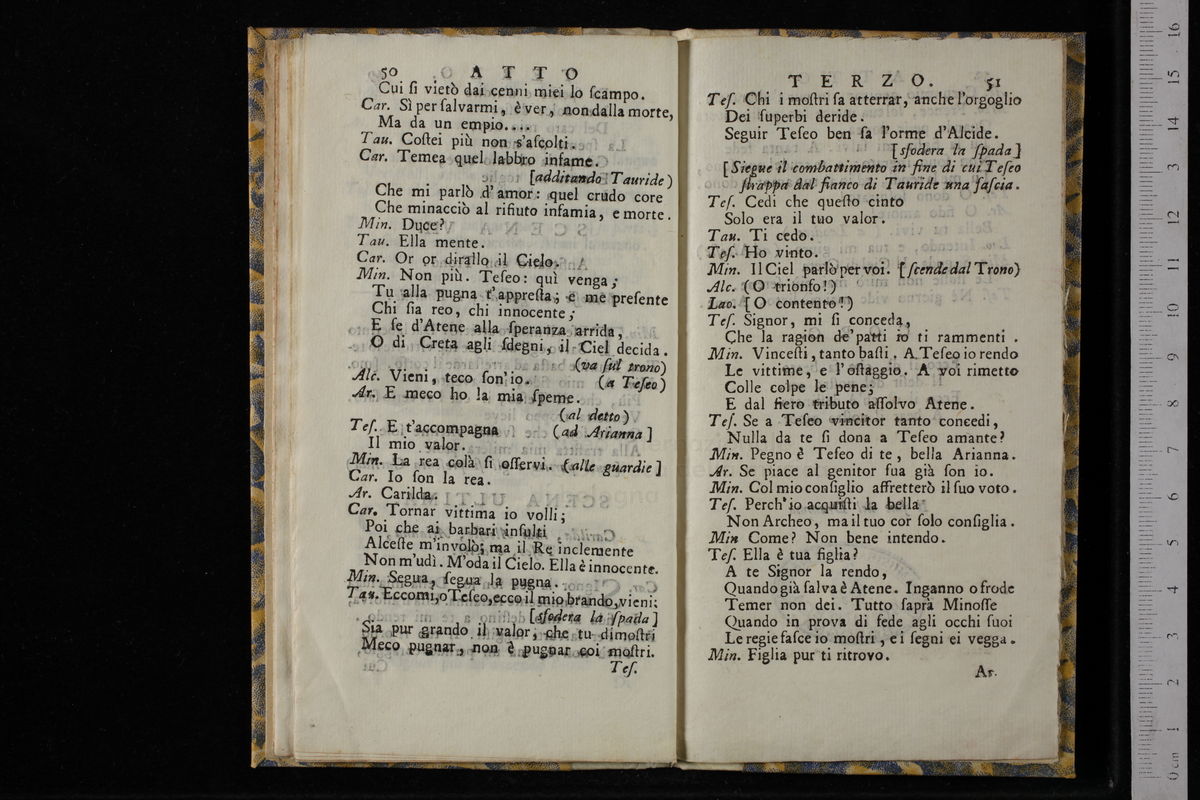 50 ATTO
Cui ſi vietò dai cenni miei lo ſcampo.
Car. Sì per ſalvarmi, è ver, non dalla morte,
Ma da un empio....
Tau. Coſtei più non s'aſcolti.
Car. Temea quel labbro infame.
[additando Tauride)
Che mi parlò d'amor: quel crudo core
Che minacciò al rifiuto infamia, e morte.
Min. Duce?
Tau. Ella mente.
Car. Or or dirallo il Cielo.
Min. Non più. Teſeo: quì venga;
Tu alla pugna t'appreſta; e me preſente
Chi ſia reo, chi innocente;
E ſe d'Atene alla ſperanza arrida,
O di Creta agli ſdegni, il Ciel decida.
(va ſul trono)
Alc. Vieni, teco ſon' io. (a Teſeo)
Ar. E meco ho la mia ſpeme.
(al detto)
Teſ. E t'accompagna (ad Arianna]
Il mio valor.
Min. La rea colà ſi oſſervi. (alle guardie]
Car. Io ſon la rea.
Ar. Carilda.
Car. Tornar vittima io volli;
Poi che ai barbari inſulti
Alceſte m'involò; ma il Re inclemente
Non m'udì. M'oda il Cielo. Ella è innocente.
Min. Segua, ſegua la pugna.
Tau. Eccomi, o Teſeo, ecco il mio brando, vieni;
[sfodera la ſpada]
Sia pur grando il valor, che tu dimoſtri
Meco pugnar, non è pugnar coi moſtri.
Teſ.
TERZO. 51
Teſ. Chi i moſtri ſa atterrar, anche l'orgoglio
Dei ſuperbi deride.
Seguir Teſeo ben ſa l'orme d'Alcide.
[sfodera la ſpada]
[Siegue il combattimento in fine di cui Teſeo
ſtrappa dal fianco di Tauride una faſcia.
Teſ. Cedi che queſto cinto
Solo era il tuo valor.
Tau. Ti cedo.
Teſ. Ho vinto.
Min. Il Ciel parlò per voi. [ſcende dal Trono)
Alc. (O trionfo!)
Lao. [O contento!)
Teſ. Signor, mi ſi conceda,
Che la ragion de'patti io ti rammenti.
Min. Vinceſti, tanto baſti. A Teſeo io rendo
Le vittime, e l'oſtaggio. A voi rimetto
Colle colpe le pene;
E dal fiero tributo aſſolvo Atene.
Teſ. Se a Teſeo vincitor tanto concedi,
Nulla da te ſi dona a Teſeo amante?
Min. Pegno è Teſeo di te, bella Arianna.
Ar. Se piace al genitor ſua già ſon io.
Min. Col mio conſiglio affretterò il ſuo voto.
Teſ. Perch'io acquiſti la bella
Non Archeo, ma il tuo cor ſolo conſiglia.
Min Come? Non bene intendo.
Teſ. Ella è tua figlia?
A te Signor la rendo,
Quando già ſalva è Atene. Inganno o frode
Temer non dei. Tutto ſaprà Minoſſe
Quando in prova di fede agli occhi ſuoi
Le regie faſce io moſtri, e i ſegni ei vegga.
Min. Figlia pur ti ritrovo.
Ar.
0 cm 1 2 3 4 5 6 7 8 9 10 11 12 13 14 15 16